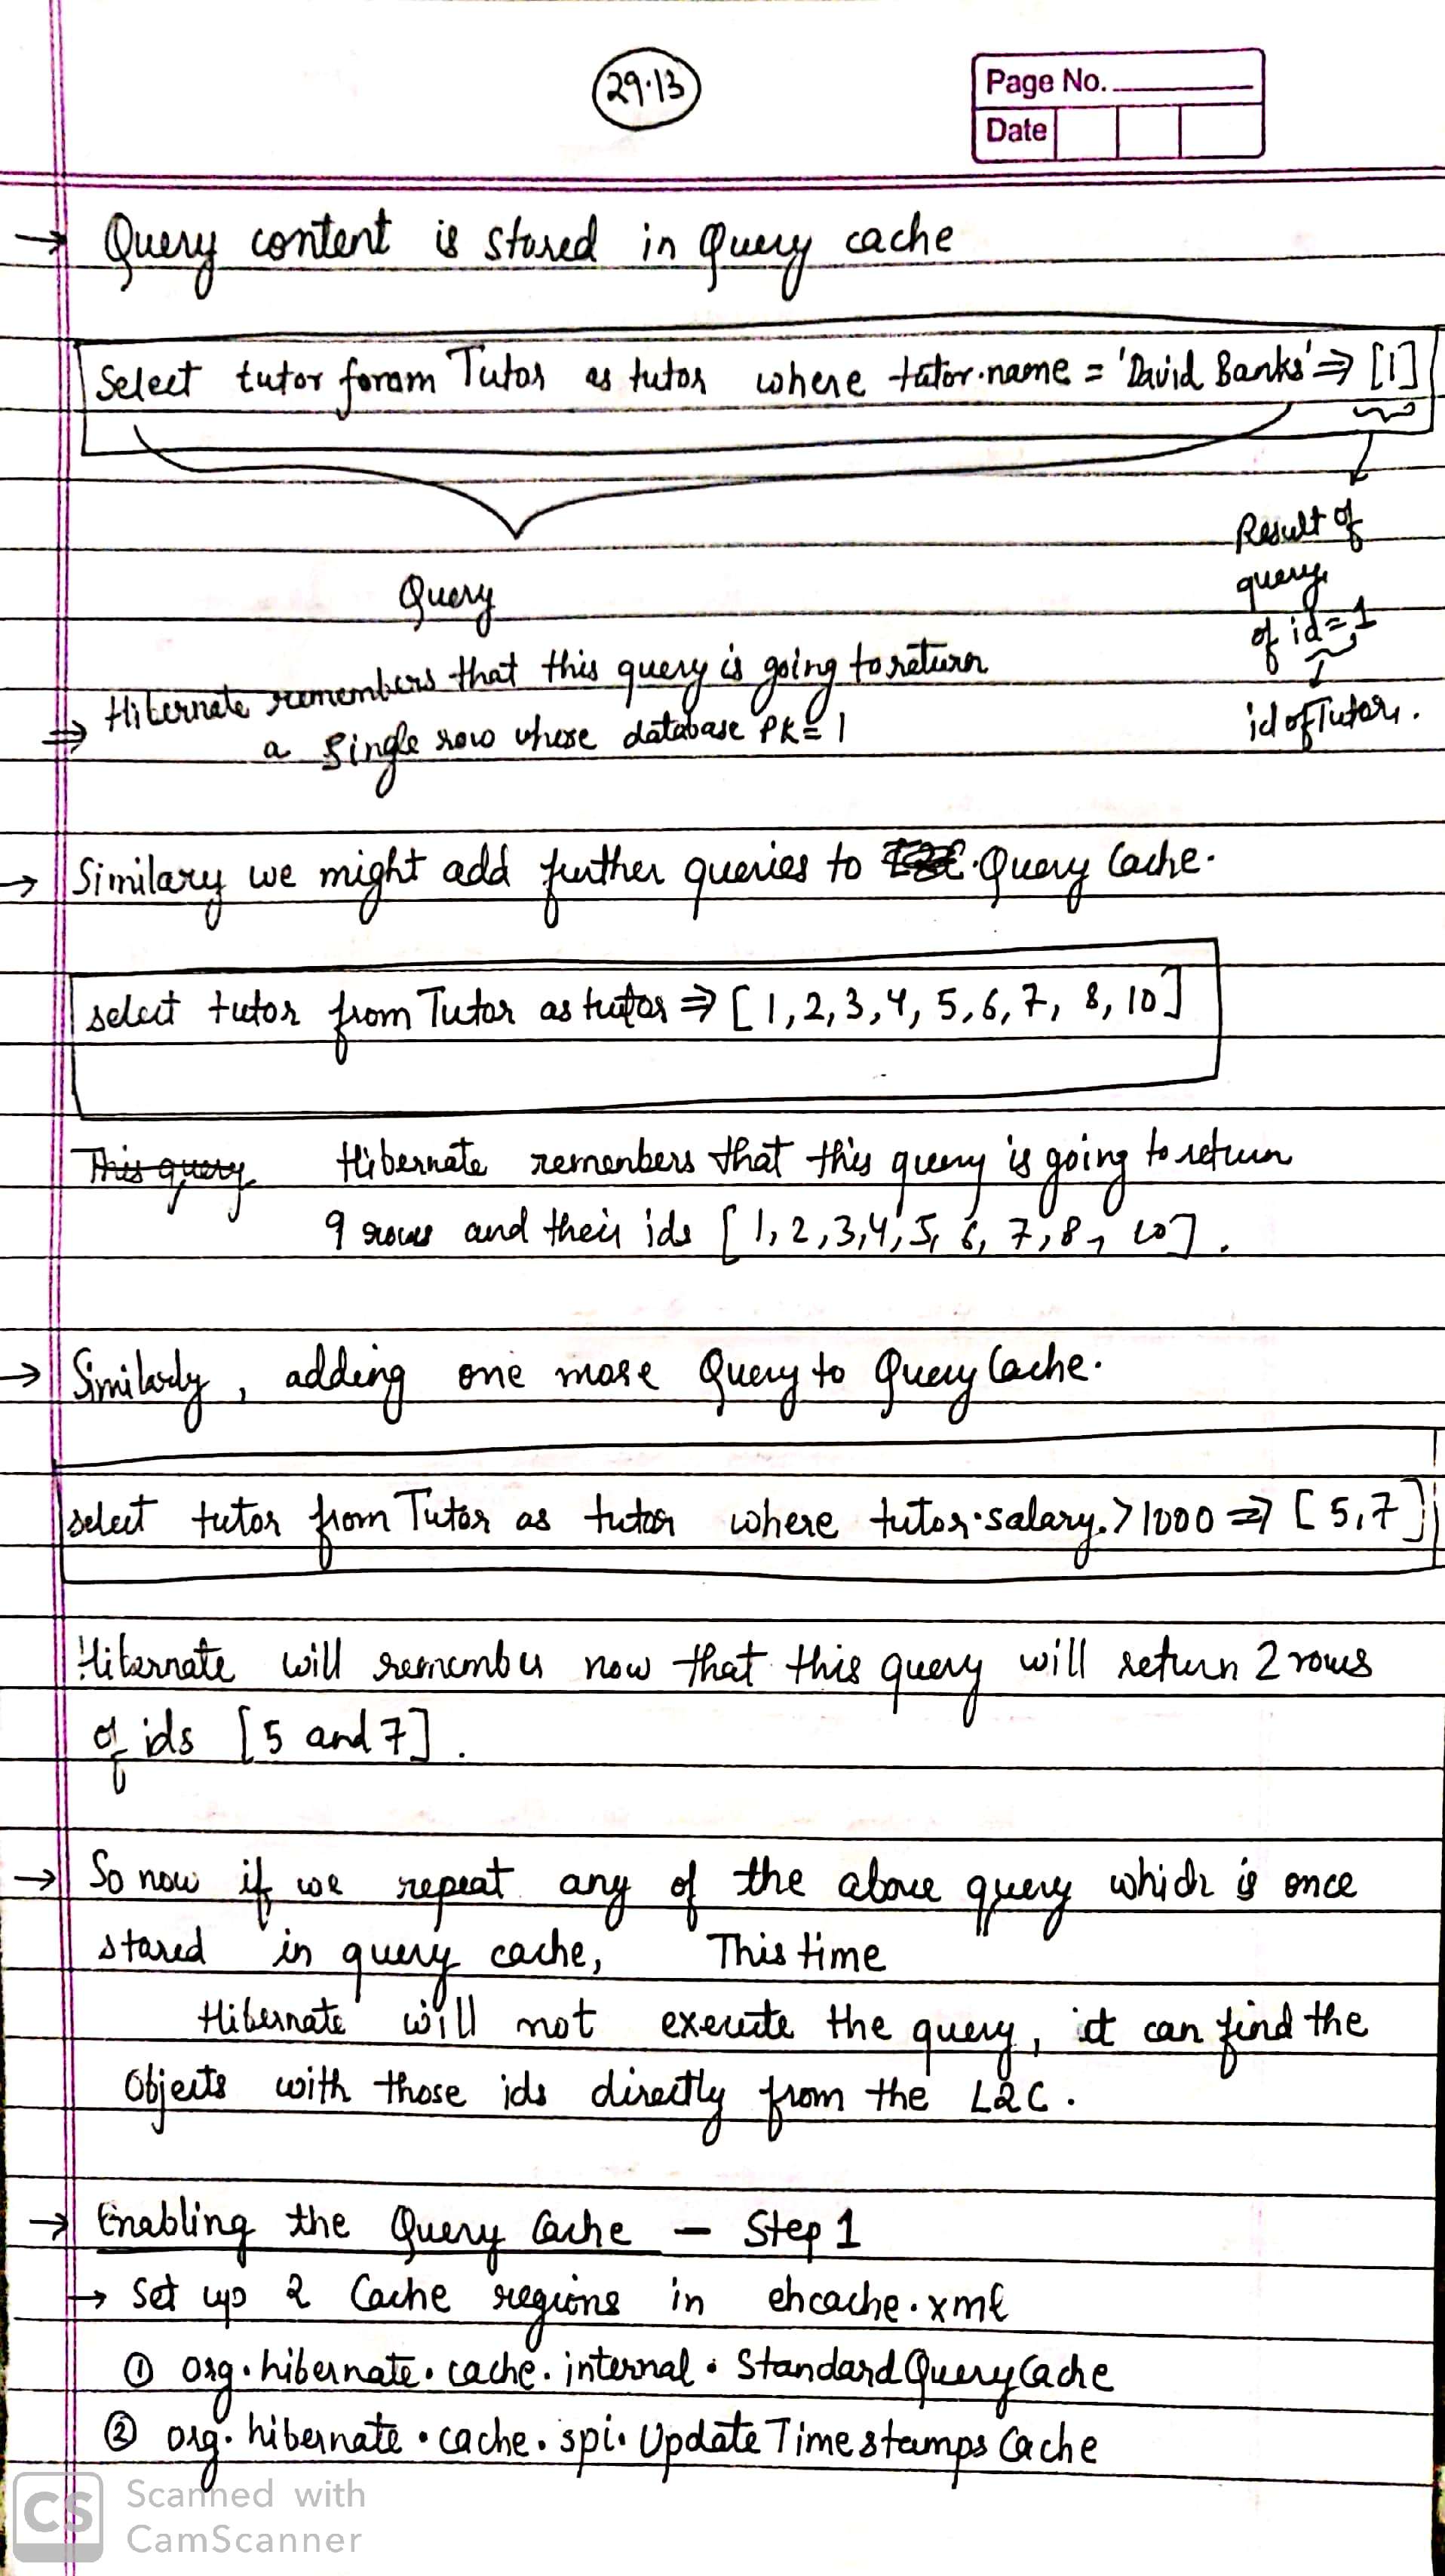 29.13
Page No.
Date
→ Query content is stored in Query cache
Select tutor foram Tutor as tutor where tutor.name = 'David Banks' ⇒ [1]
Query
Result of
query
of id = 1
id of Tutor.
⇒ Hibernate remembers that this query is going to return
a single row whose database PK = 1
→ Similary we might add further queries to Query Cache.
select tutor from Tutor as tutor ⇒ [1,2,3,4,5,6,7,8,10]
This query Hibernate remenbers that this query is going to return
9 rows and their ids [1,2,3,4,5,6,7,8,10].
→ Similarly, adding one more Query to Query Cache.
select tutor from Tutor as tutor where tutor.salary.> 1000 ⇒ [5,7]
Hibernate will remember now that this query will return 2 rows
of ids [5 and 7].
→ So now if we repeat any of the above query which is once
stored in query cache, This time
Hibernate will not execute the query, it can find the
Objects with those ids directly from the L2C.
→ Enabling the Query Cache – Step 1
→ Set up 2 Cache regions in ehcache.xml
① org.hibernate.cache.internal.StandardQueryCache
② org.hibernate.cache.spi.UpdateTimestampsCache
CS Scanned with
CamScanner